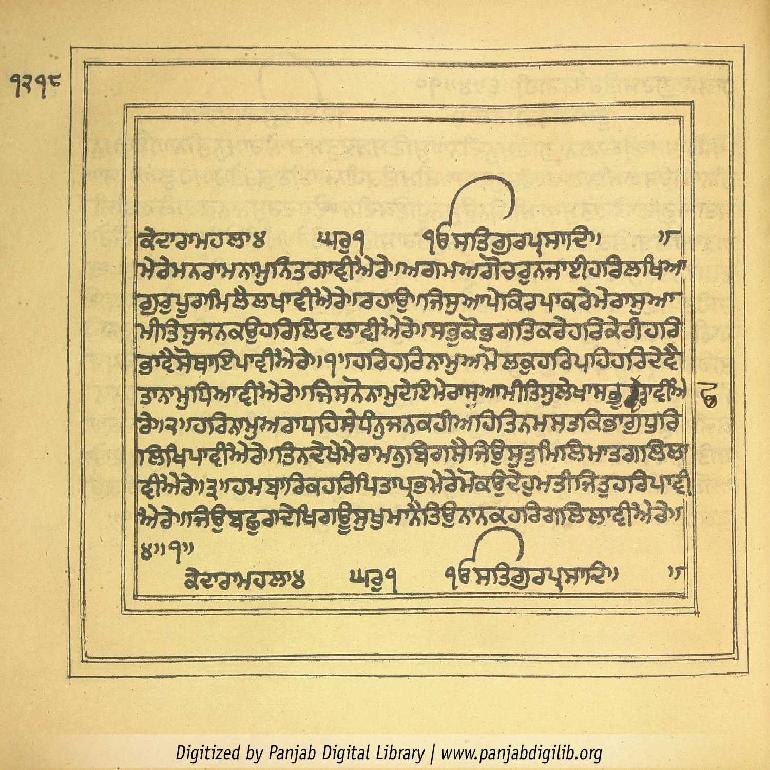 ੧੨੧੮
ਕੇਦਾਰਾਮਹਲਾ੪ ਘਰੁ੧ ੴਸਤਿਗੁਰਪ੍ਰਸਾਦਿ॥ ॥
ਮੇਰੇਮਨਰਾਮਨਾਮੁਨਿਤਗਾਵੀਐਰੇ॥ਅਗਮਅਗੋਚਰੁਨਜਾਈਹਰਿਲਖਿਆ
ਗੁਰੁਪੂਰਾਮਿਲੈਲਖਾਵੀਐਰੇ॥ਰਹਾਉ॥ਜਿਸੁਆਪੇਕਿਰਪਾਕਰੇਮੇਰਾਸੁਆ
ਮੀਤਿਸੁਜਨਕਉਹਰਿਲਿਵਲਾਵੀਐਰੇ॥ਸਭੁਕੋਭਗਤਿਕਰੇਹਰਿਕੇਰੀਹਰਿ
ਭਾਵੈਸੋਥਾਇਪਾਵੀਐਰੇ॥੧॥ਹਰਿਹਰਿਨਾਮੁਅਮੋਲਕੁਹਰਿਪਹਿਹਰਿਦੇਵੈ
ਤਾਨਾਮੁਧਿਆਵੀਐਰੇ॥ਜਿਸਨੋਨਾਮੁਦੇਇਮੇਰਾਸੁਆਮੀਤਿਸੁਲੇਖਾਸਭੁਛਡਾਵੀਐ
ਰੇ॥੨॥ਹਰਿਨਾਮੁਅਰਾਧਹਿਸੇਧੰਨੁਜਨਕਹੀਅਹਿਤਿਨਮਸਤਕਿਭਾਗੁਧੁਰਿ
ਲਿਖਿਪਾਵੀਐਰੇ॥ਤਿਨਦੇਖੇਮੇਰਾਮਨੁਬਿਗਸੈਜਿਉਸੁਤੁਮਿਲਿਮਾਤਗਲਿਲਾ
ਵੀਐਰੇ॥੩॥ਹਮਬਾਰਿਕਹਰਿਪਿਤਾਪ੍ਰਭਮੇਰੇਮੋਕਉਦੇਹੁਮਤੀਜਿਤੁਹਰਿਪਾਵੀ
ਐਰੇ॥ਜਿਉਬਛੁਰਾਦੇਖਿਗਊਸੁਖੁਮਾਨੈਤਿਉਨਾਨਕਹਰਿਗਲਿਲਾਵੀਐਰੇ॥
੪॥੧॥
ਕੇਦਾਰਾਮਹਲਾ੪ ਘਰੁ੧ ੴਸਤਿਗੁਰਪ੍ਰਸਾਦਿ॥ ॥
Digitized by Panjab Digital Library | www.panjabdigilib.org